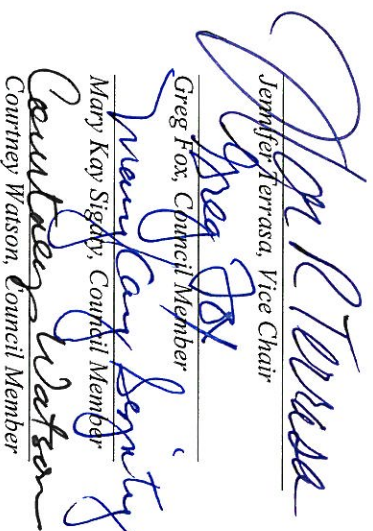 Jen R Terrasa
Jennifer Terrasa, Vice Chair
Greg Fox
Greg Fox, Council Member
Mary Kay Sigaty
Mary Kay Sigaty, Council Member
Courtney Watson
Courtney Watson, Council Member